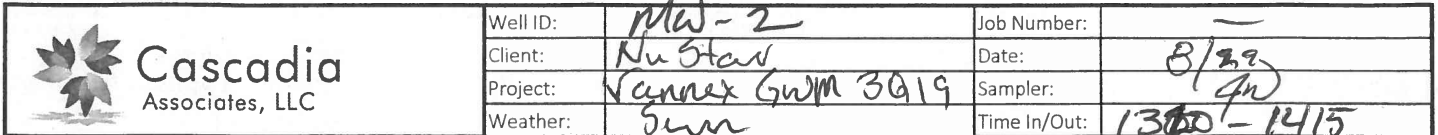 Cascadia
Associates, LLC
Well ID: MW-2 Job Number: —
Client: NuStar Date: 8/29
Project: Vannex GWM 3Q19 Sampler:
Weather: Sun Time In/Out: - 1415